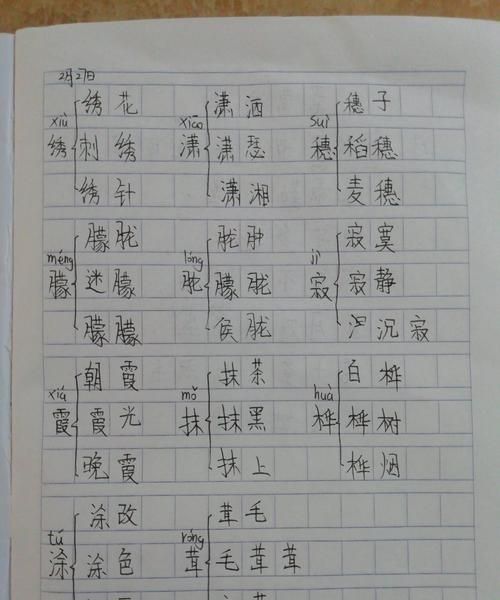 2月27日
xiù 绣 绣花 刺绣 绣针
xiāo 潇 潇洒 潇瑟 潇湘
suì 穗 穗子 稻穗 麦穗
méng 朦 朦胧 迷朦 朦朦
lóng 胧 胧肿 朦胧 侯胧
jì 寂 寂寞 寂静 沉寂
xiá 霞 朝霞 霞光 晚霞
mǒ 抹 抹茶 抹黑 抹上
huà 桦 白桦 桦树 桦烟
tú 涂 涂改 涂色
róng 茸 茸毛 毛茸茸